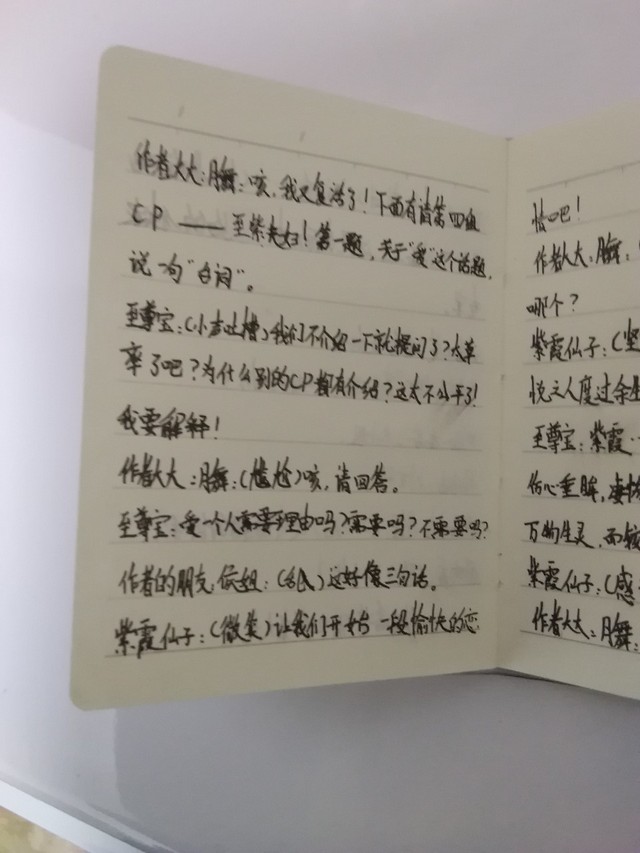 作者大大:月舞:咳,我又复活了!下面有请第四组
CP——至紫夫妇!第一题,关于“爱”这个话题,
说一句“台词”。
至尊宝:(小声吐槽)我们不介绍一下就提问了?太草
率了吧?为什么别的CP都有介绍?这太不公平了!
我要解释!
作者大大:月舞:(尴尬)咳,请回答。
至尊宝:爱一个人需要理由吗?需要吗?不需要吗?
作者的朋友::()这好像三句话。
紫霞仙子:(微笑)让我们开始一段愉快的恋
情吧!
作者大大:月舞:
哪个?
紫霞仙子:(坚
悦之人度过余生
至尊宝:紫霞
伤心垂眸,凄
万物生灵,而较
紫霞仙子:(感
作者大大:月舞: